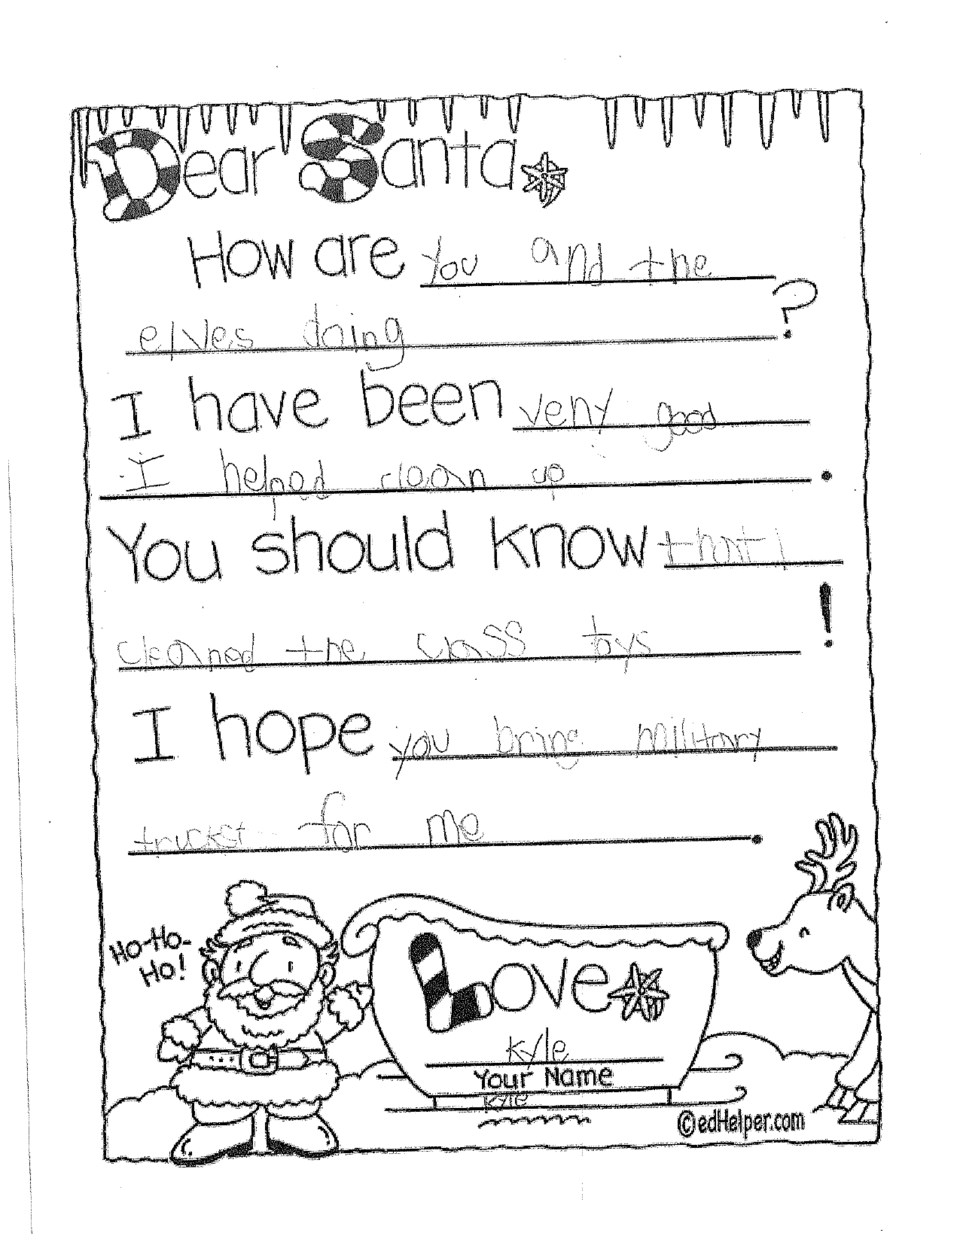 Dear Santa,
How are you and the
elves doing ?
I have been very good
I helped clean up .
You should know that I
cleaned the class toys !
I hope you bring military
truckst for me .
Ho-Ho-
Ho!
Love,
kyle
Your Name
kyle
©edHelper.com